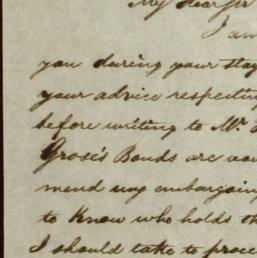 My dear Sir
I am
you during your stay
your advice respecting
before writing to Mr.
Grose's Bonds are
mend my embargoing
to Know who holds th
I should take to proce